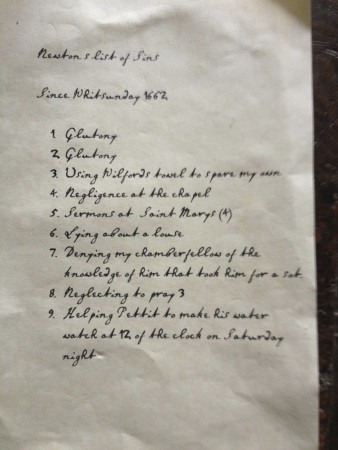 Newton's list of Sins
Since Whitsunday 1662
1. Glutony
2. Glutony
3. Using Wilfords towel to spare my own
4. Negligence at the chapel
5. Sermons at Saint Marys (4)
6. Lying about a louse
7. Denying my chamberfellow of the
knowledge of him that took him for a sot.
8. Neglecting to pray 3
9. Helping Pettit to make his water
watch at 12 of the clock on Saturday
night